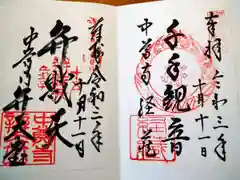 奉拝 令和三年
十月十一日
千手観音
中尊寺経蔵
奉拝 令和三年
十月十一日
弁財天
中尊寺弁天堂